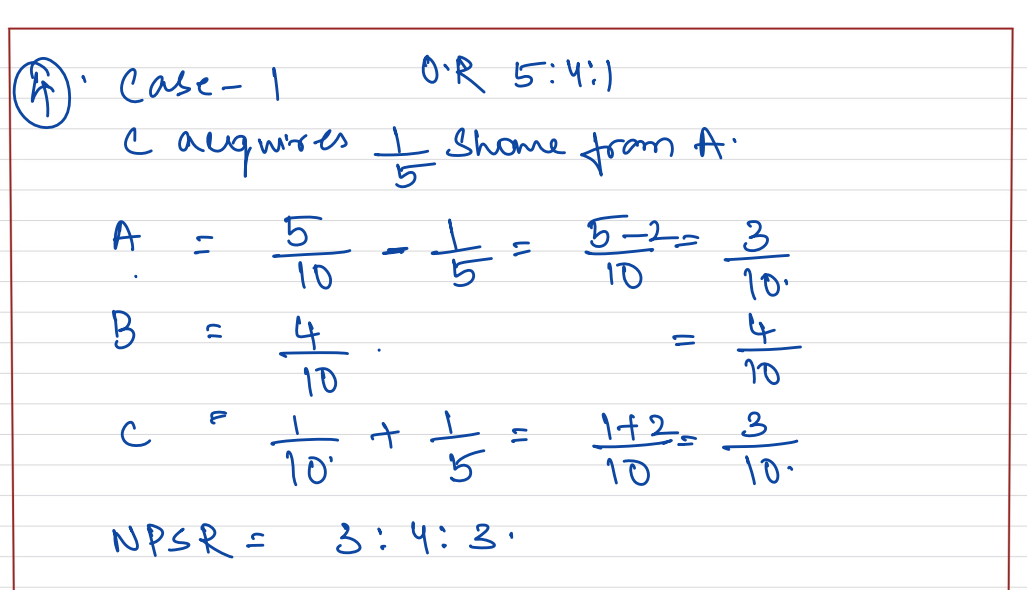 4. Case-1 O.R 5:4:1
C acquires 1/5 Share from A.
A = 5/10 - 1/5 = 5-2/10 = 3/10.
B = 4/10 = 4/10
C = 1/10 + 1/5 = 1+2/10 = 3/10.
NPSR = 3:4:3.